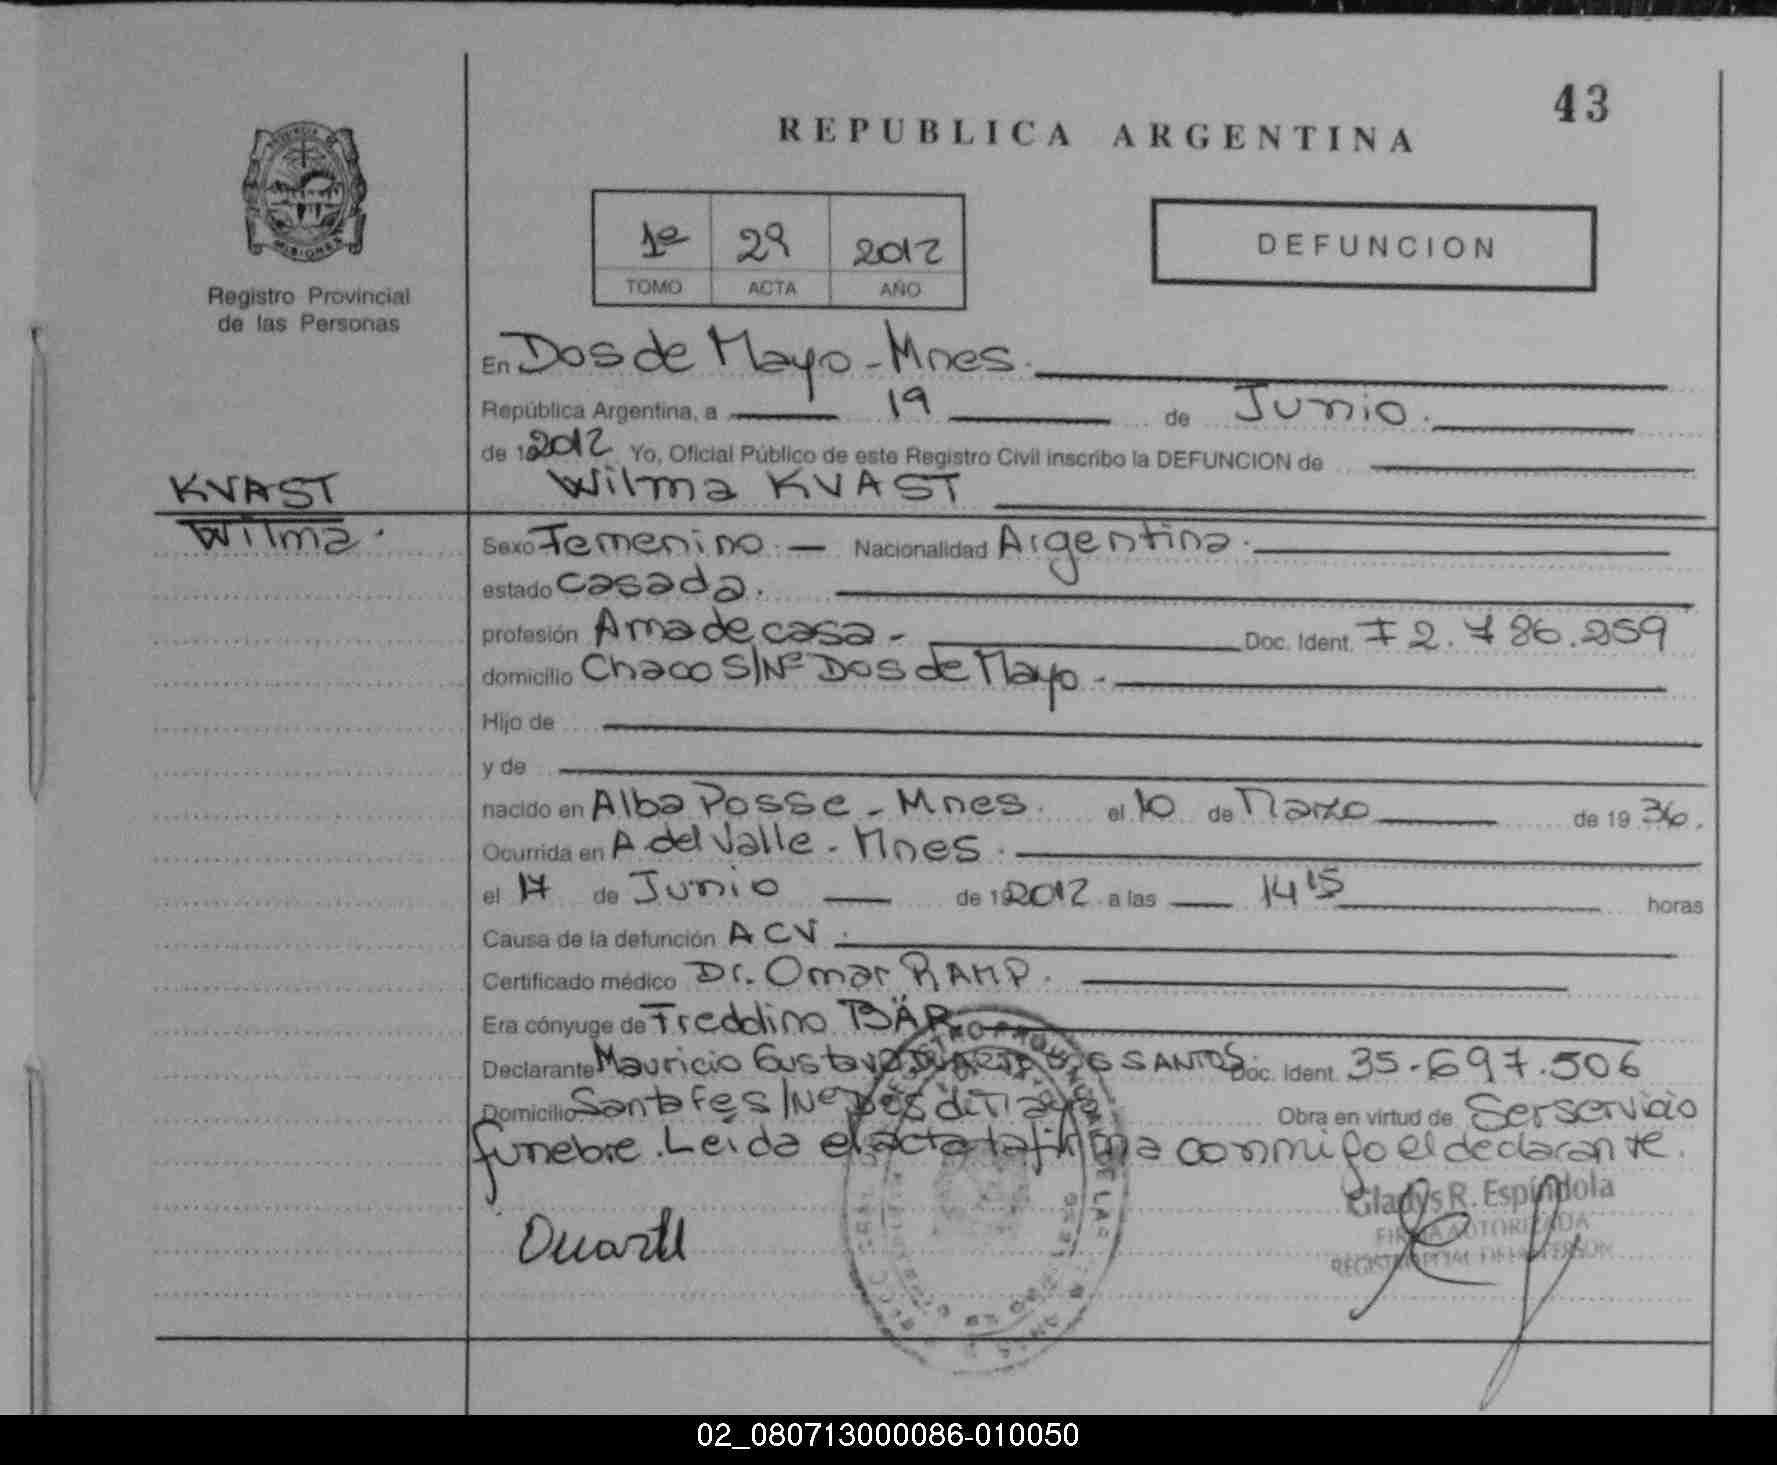 43
REPUBLICA ARGENTINA
MISIONES
Registro Provincial
de las Personas
1º 29 2012
TOMO ACTA AÑO
DEFUNCION
En Dos de Mayo - Mnes.
República Argentina, a 19 de Junio.
de 1 2012 Yo, Oficial Público de este Registro Civil inscribo la DEFUNCION de
Wilma KVAST
KVAST
Wilma.
Sexo Femenino. Nacionalidad Argentina.
estado casada.
profesión Ama de casa - Doc. Ident. F 2.786.259
domicilio Chaco S/Nº Dos de Mayo -
Hijo de
y de
nacido en Alba Posse - Mnes. el 10 de Marzo de 19 36.
Ocurrida en A. del Valle - Mnes.
el 17 de Junio de 1 2012 a las 14 15 horas
Causa de la defunción ACV.
Certificado médico Dr. Omar RAMP.
Era cónyuge de Freddino BÄR
Declarante Mauricio Gustavo DUARTE DOS SANTOS Doc. Ident. 35.697.506
Domicilio Santa Fe S/Nº Dos de Mayo Obra en virtud de Ser servicio
funebre. Leida el acta la firma conmigo el declarante.
Gladys R. Espíndola
FIRMA AUTORIZADA
Duarte
02_080713000086-010050